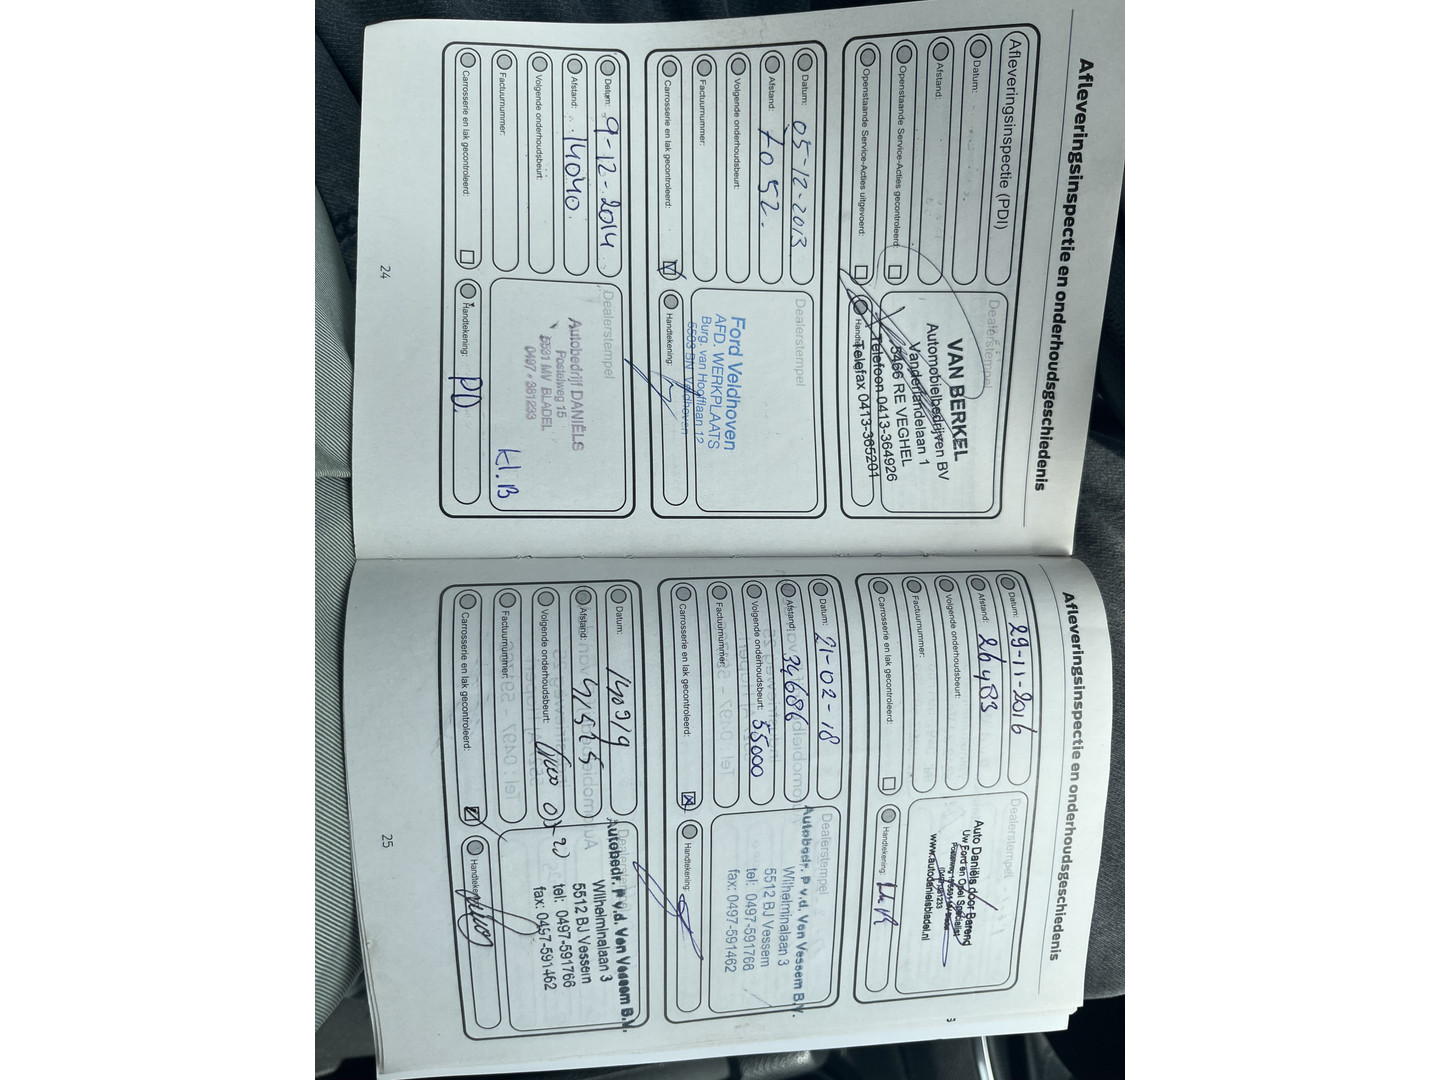 Afleveringsinspectie en onderhoudsgeschiedenis
Afleveringsinspectie (PDI)
Datum:
Afstand:
Openstaande Service-Acties gecontroleerd:
Openstaande Service-Acties uitgevoerd:
Dealerstempel
VAN BERKEL
Automobielbedrijven BV
Vanderlandelaan 1
5466 RE VEGHEL
Telefoon 0413-364926
Telefax 0413-365201
Datum: 05-12-2013
Afstand: 7052.
Volgende onderhoudsbeurt:
Factuurnummer:
Carrosserie en lak gecontroleerd:
Dealerstempel
Ford Veldhoven
AFD. WERKPLAATS
Burg. van Hoofflaan 12
5503 BN Veldhoven
Handtekening:
Datum: 9-12-2014
Afstand: 14040.
Volgende onderhoudsbeurt:
Factuurnummer:
Carrosserie en lak gecontroleerd:
Dealerstempel
Autobedrijf DANIËLS
Postelweg 15
5531 MV BLADEL
0497 - 381233
kl. B
Handtekening: PD.
24
Afleveringsinspectie en onderhoudsgeschiedenis
Datum: 29-11-2016
Afstand: 26483
Volgende onderhoudsbeurt:
Factuurnummer:
Carrosserie en lak gecontroleerd:
Dealerstempel
Auto Daniëls door Barend
Uw Ford en Opel Specialist
www.autodanielsbladel.nl
Handtekening:
Datum: 21-02-18
Afstand: 34686
Volgende onderhoudsbeurt: 35000
Factuurnummer:
Carrosserie en lak gecontroleerd:
Dealerstempel
Autobedr. P v.d. Ven Vessem B.V.
Wilhelminalaan 3
5512 BJ Vessem
tel: 0497-591766
fax: 0497-591462
Handtekening:
Datum:
Afstand:
Volgende onderhoudsbeurt:
Factuurnummer:
Carrosserie en lak gecontroleerd:
Dealerstempel
Autobedr. P v.d. Ven Vessem B.V.
Wilhelminalaan 3
5512 BJ Vessem
tel: 0497-591766
fax: 0497-591462
Handtekening:
25